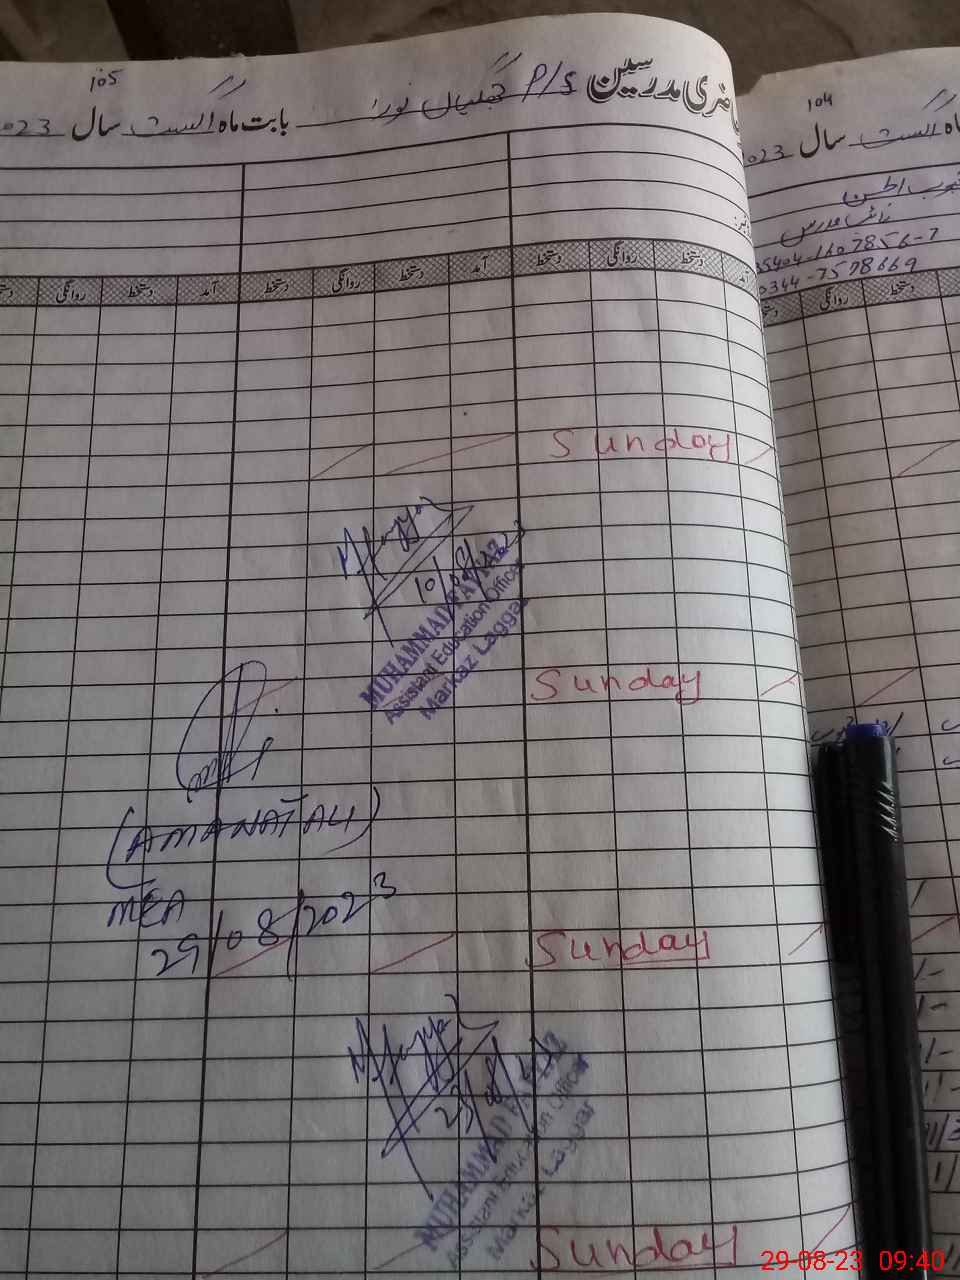 105
حاضری مدرسین P/S بابت ماہ اگست سال 2023
آمد دستخط روانگی دستخط آمد دستخط روانگی دستخط آمد دستخط روانگی
Sunday
10/08/23
MUHAMMAD FAYYAZ
Assistant Education Officer
Markaz Laggar
Sunday
(AMANAT ALI)
MEA
29/08/2023
Sunday
23/8/23
MUHAMMAD FAYYAZ
Assistant Education Officer
Markaz Laggar
Sunday
104
ماہ اگست سال 2023
35404-1607856-7
0344-7578669
روانگی دستخط
29-08-23 09:40